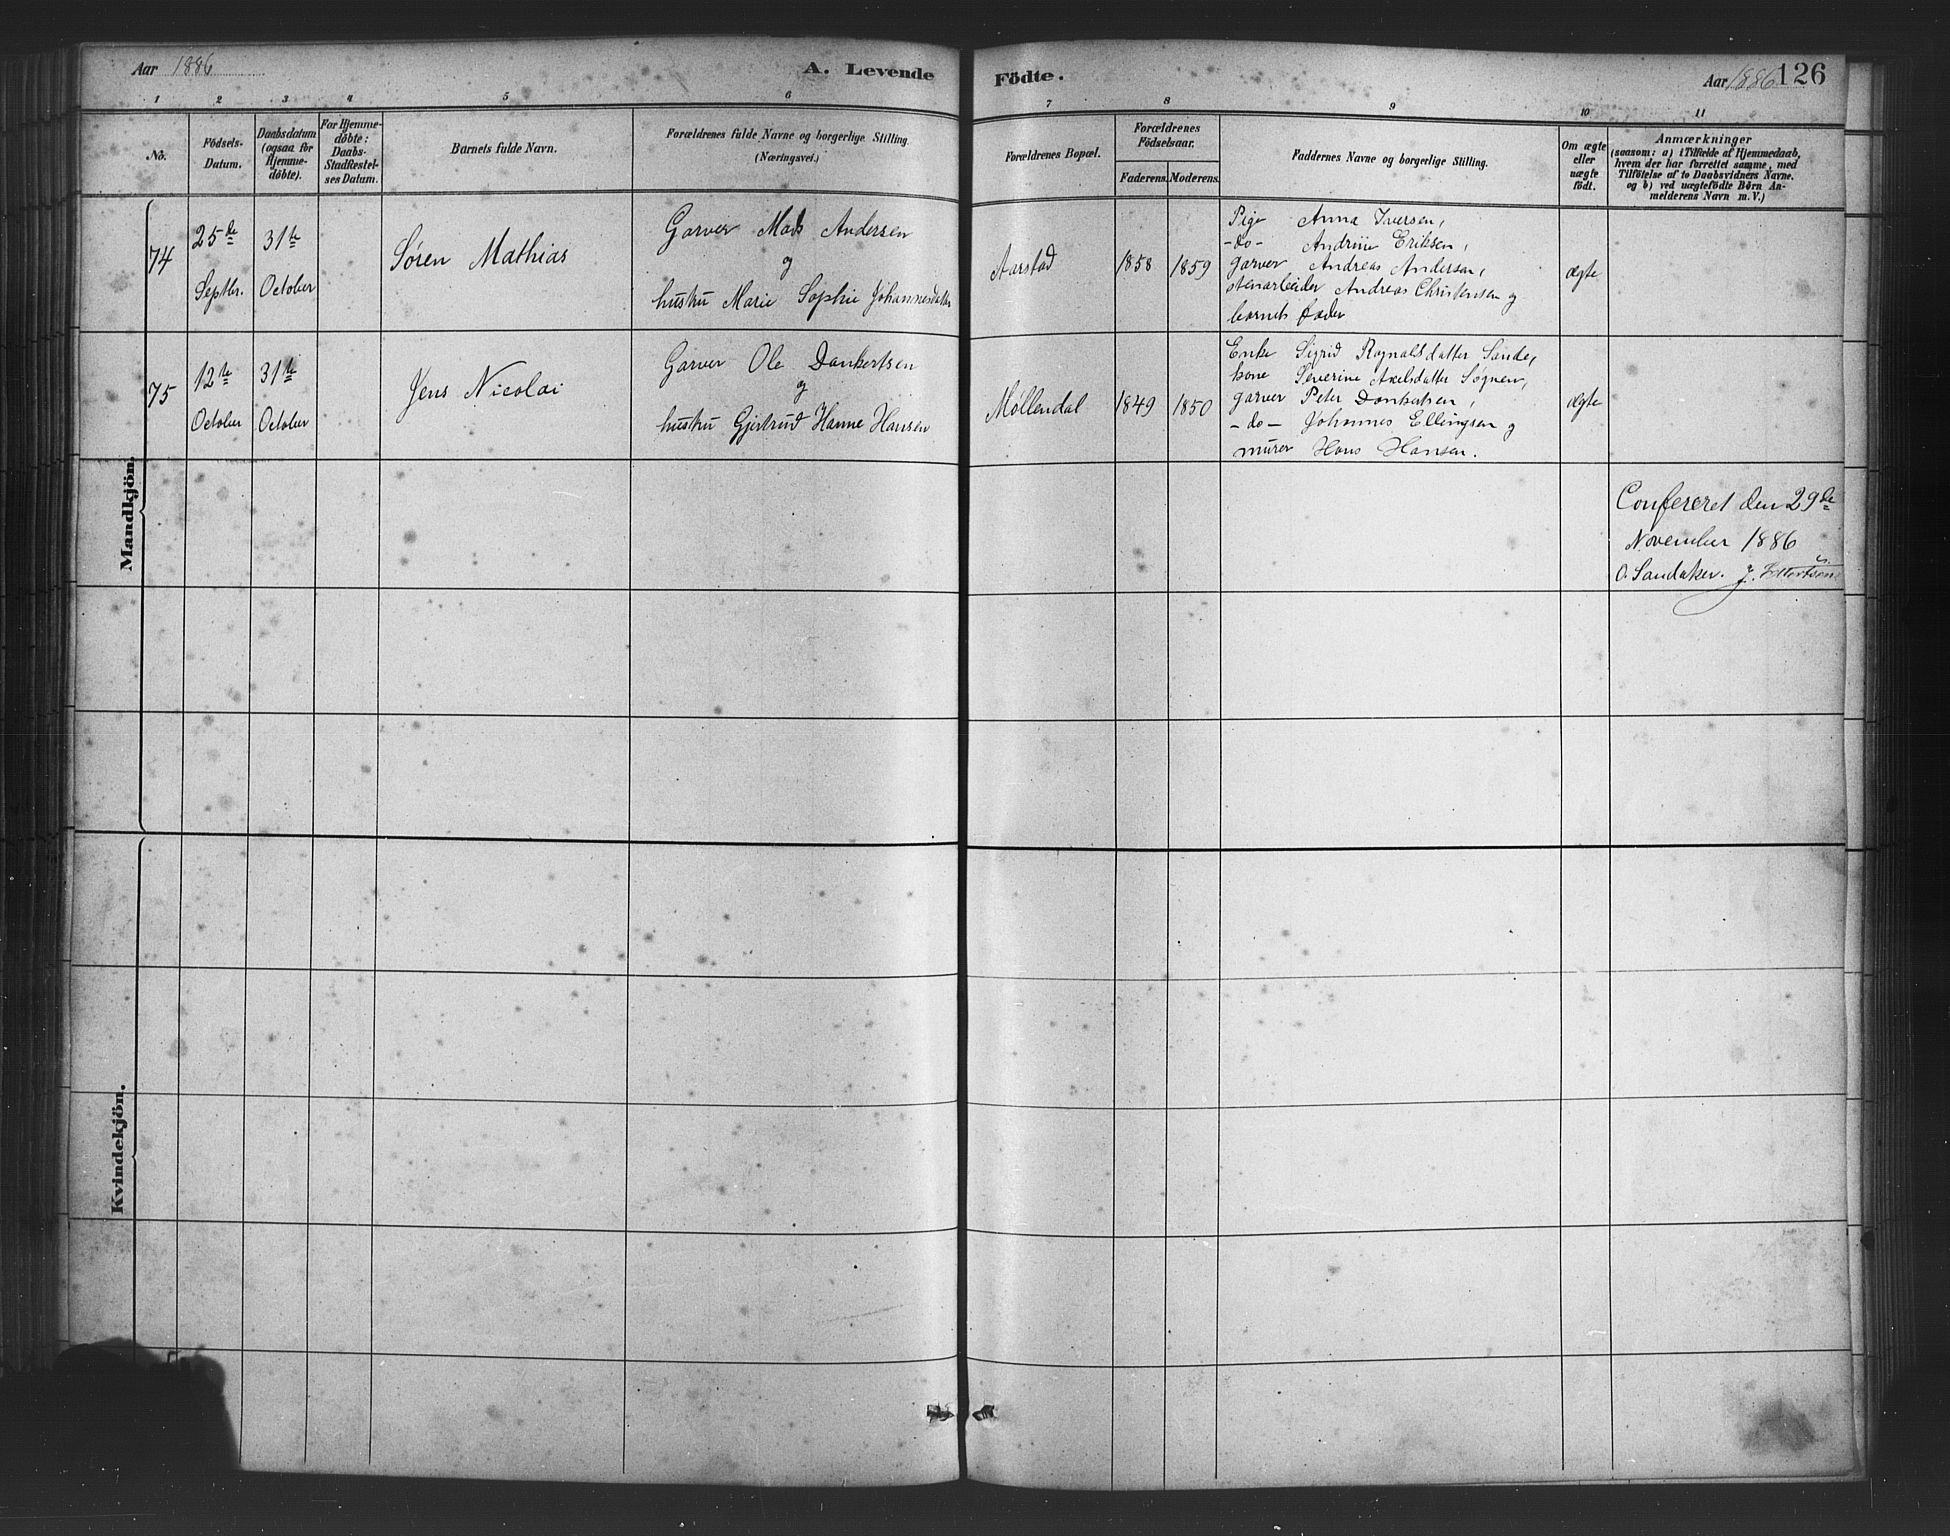 Aar 1886
A. Levende
Födte.
Aar 1886 126
1 2 3 4 5 6 7 8 9 10 11
No.
Födsels-
Datum.
Daabsdatum
(ogsaa for
Hjemme-
døbte).
For Hjemme-
døbte:
Daabs-
Stadfæstel-
ses Datum.
Barnets fulde Navn.
Forældrenes fulde Navne og borgerlige Stilling.
(Næringsvei.)
Forældrenes Bopæl.
Forældrenes
Födselsaar.
Faderens. Moderens.
Faddernes Navne og borgerlige Stilling.
Om ægte
eller
uægte
født.
Anmærkninger
(saasom: a) i Tilfælde af Hjemmedaab,
hvem der har forrettet samme, med
Tilföielse af to Daabsvidners Navne.
og b) ved uægtefödte Börn An-
melderens Navn m.V.)
Mandkjön.
74
25de
Septbr.
31te
October
Søren Mathias
Garver Mads Andersen
og
hustru Marie Sophie Johannesdatter
Aarstad
1858
1859
Pige Anna Iversen,
-do- Andrine Eriksen,
garver Andreas Andersen,
stenarbeider Andreas Christensen og
barnets fader
ægte
75
12te
October
31te
October
Jens Nicolai
Garver Ole Dankertsen
og
hustru Gjertrud Hanne Hansen
Møllendal
1849
1850
Enke Sigrid Ragnalsdatter Sande,
kone Severine Axelsdatter Søgnen,
garver Peter Dankertsen,
-do- Johannes Ellingsen og
murer Hans Hansen.
ægte
Confereret den 29de
November 1886
O. Sandaker. J.
Kvindekjön.